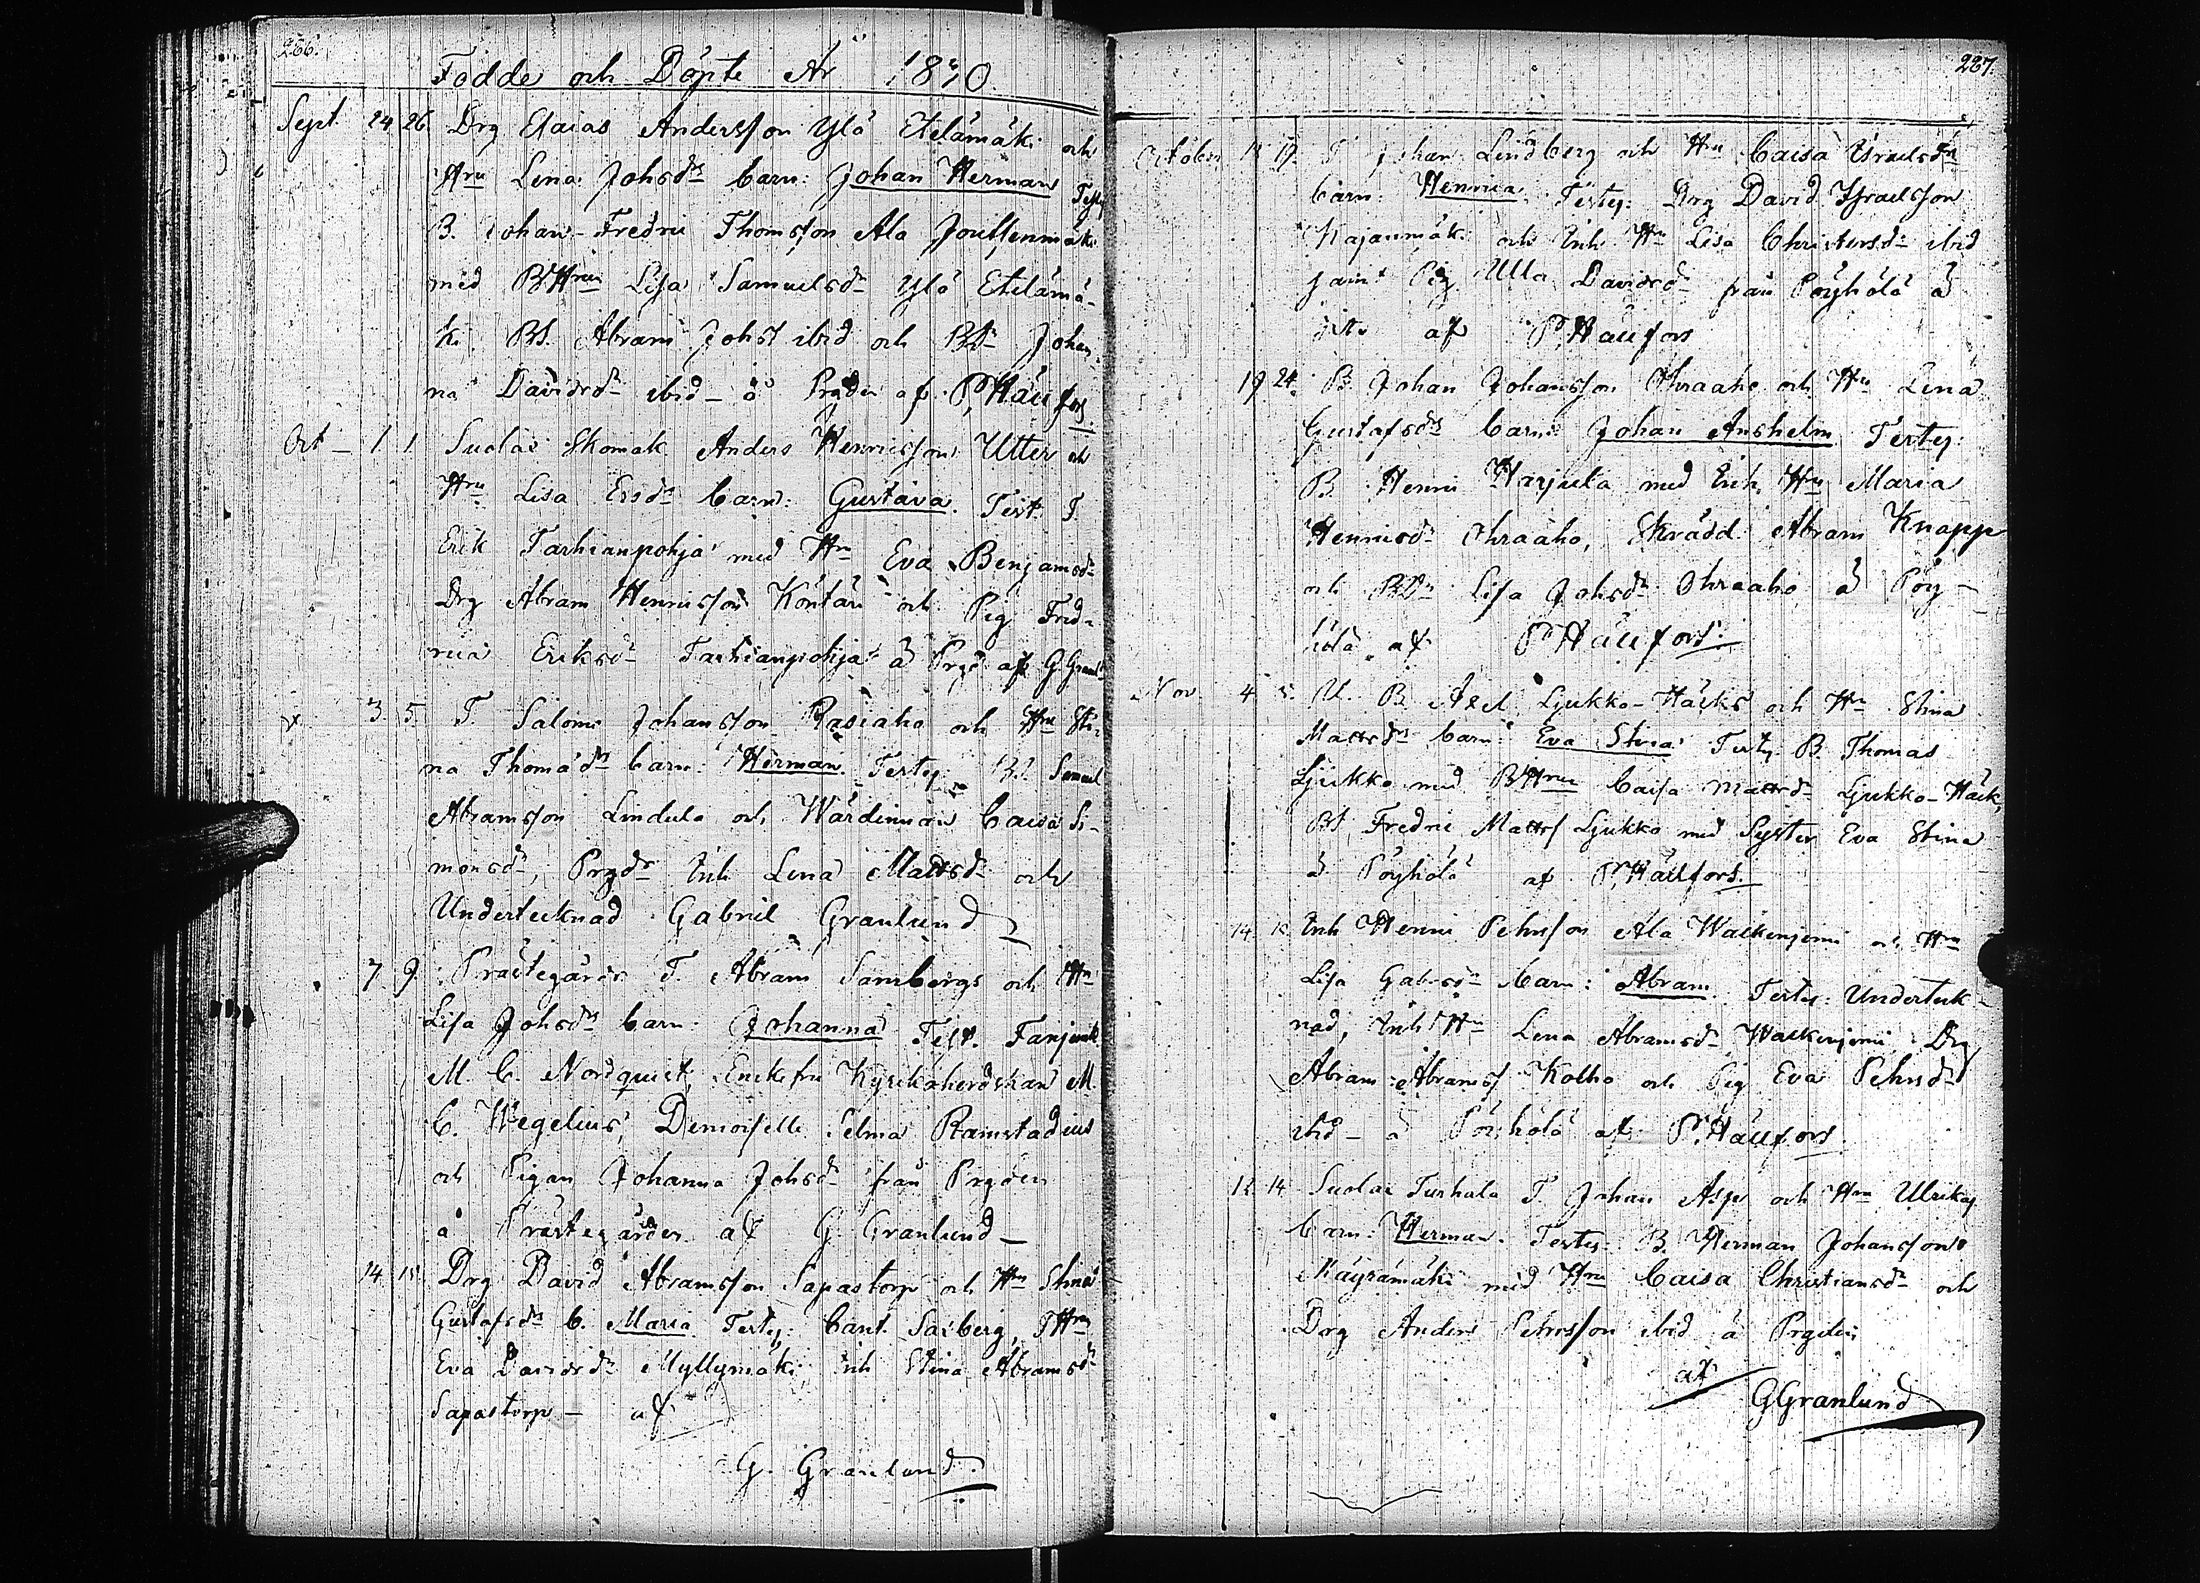 266.
Födde och Döpte År 1840.
Sept. 24 26. Drg Esaias Andersson Ylö Etelämäki och
Hru Lena Johsdr barn: Johan Herman Testes
B. Johan Fredric Thomsson Ala Jouttenmäki
med BHru Lisa Samuelsdr Ylö Etelämä-
ki BS. Abram Johss ibid och BDr Johan-
na Davidsdr ibid – å Prgden af P. Hällfors
Oct – 1. 1 Suolax Skomak Anders Henricsson Utter och
Hru Lisa Ersdr barn: Gustava. Test. T.
Erik Tarhianpohja med Hru Eva Benjamsdr
Drg Abram Henricsson Köntäri och Pig Fred-
rica Eriksdr Tarhianpohja å Prgd af G Granl
3. 5. T. Salomo Johansson Rasiaho och Hru Sti-
na Thomædr barn: Herman. Testes BS. Samuel
Abramsson Lindula och Wärdinnan Caisa Si-
monsdr, Prgds Inh Lena Mattsdr och
Undertecknad Gabriel Granlund
7. 9. Prästegårds T. Abram Sambergs och Hru
Lisa Johsdr barn: Johanna Test. Fanjunk
M. C. Nordquist, Enkefru Kyrckoherdskan M.
C. Wegelius, Demoiselle Selma Ramstadius
och Pigan Johanna Johsdr från Prgden
å Prästegården af G. Granlund –
14. 15. Drg David Abramsson Sapastorp och Hru Stina
Gustafsdr b. Maria Testes: Cant. Saxberg, THru
Eva Davidsdr Myllymäki Inh Stina Abramsdr
Sapastorp – af
G. Granlund.
267.
October 18 19. T Johan Lindberg och Hru Caisa Israelsdr
barn: Henrica Testes: Drg David Israelsson
Kajanmäki och Inh Hru Lisa Christersdr ibid
samt Pig Ulla Davidsdr från Pöyhölä å
af P. Hällfors
19. 24. B. Johan Johansson Ohraaho och Hru Lena
Gustafsdr barn: Johan Anshelm Testes:
B. Henric Harjula med Inh. Hru Maria
Henricsdr Ohraaho, Skrädd. Abram Knapp
och BDr Lisa Johsdr Ohraaho å Pöy-
hölä af P. Hällfors.
Nov 4 5. U. B. Axel Ljukko-Häcks och Hru Stina
Mattsdr barn: Eva Stina Testes B. Thomas
Ljukko med BHru Caisa Mattsdr Ljukko-Häck,
BS Fredric Mattss Ljukko med Syster Eva Stina
å Pöyhölä af P. Hällfors.
14. 18. Inh Henric Pehrsson Ala Walkenjemi och Hru
Lisa Gabrsdr barn: Abram Testes: Underteck-
nad, Inh Hru Lena Abramsdr Walkenjemi Drg
Abram Abramss Kolho och Pig Eva Pehrsdr
ibid – å Pöyhölä af P. Hällfors.
12 14 Suolax Turhala T. Johan Asp och Hru Ulrikas
barn: Herman. Testes: B. Herman Johansson
Mäyrämäki med Hru Caisa Christiansdr och
Drg Anders Pehrsson ibid å Prgden
af
GGranlund